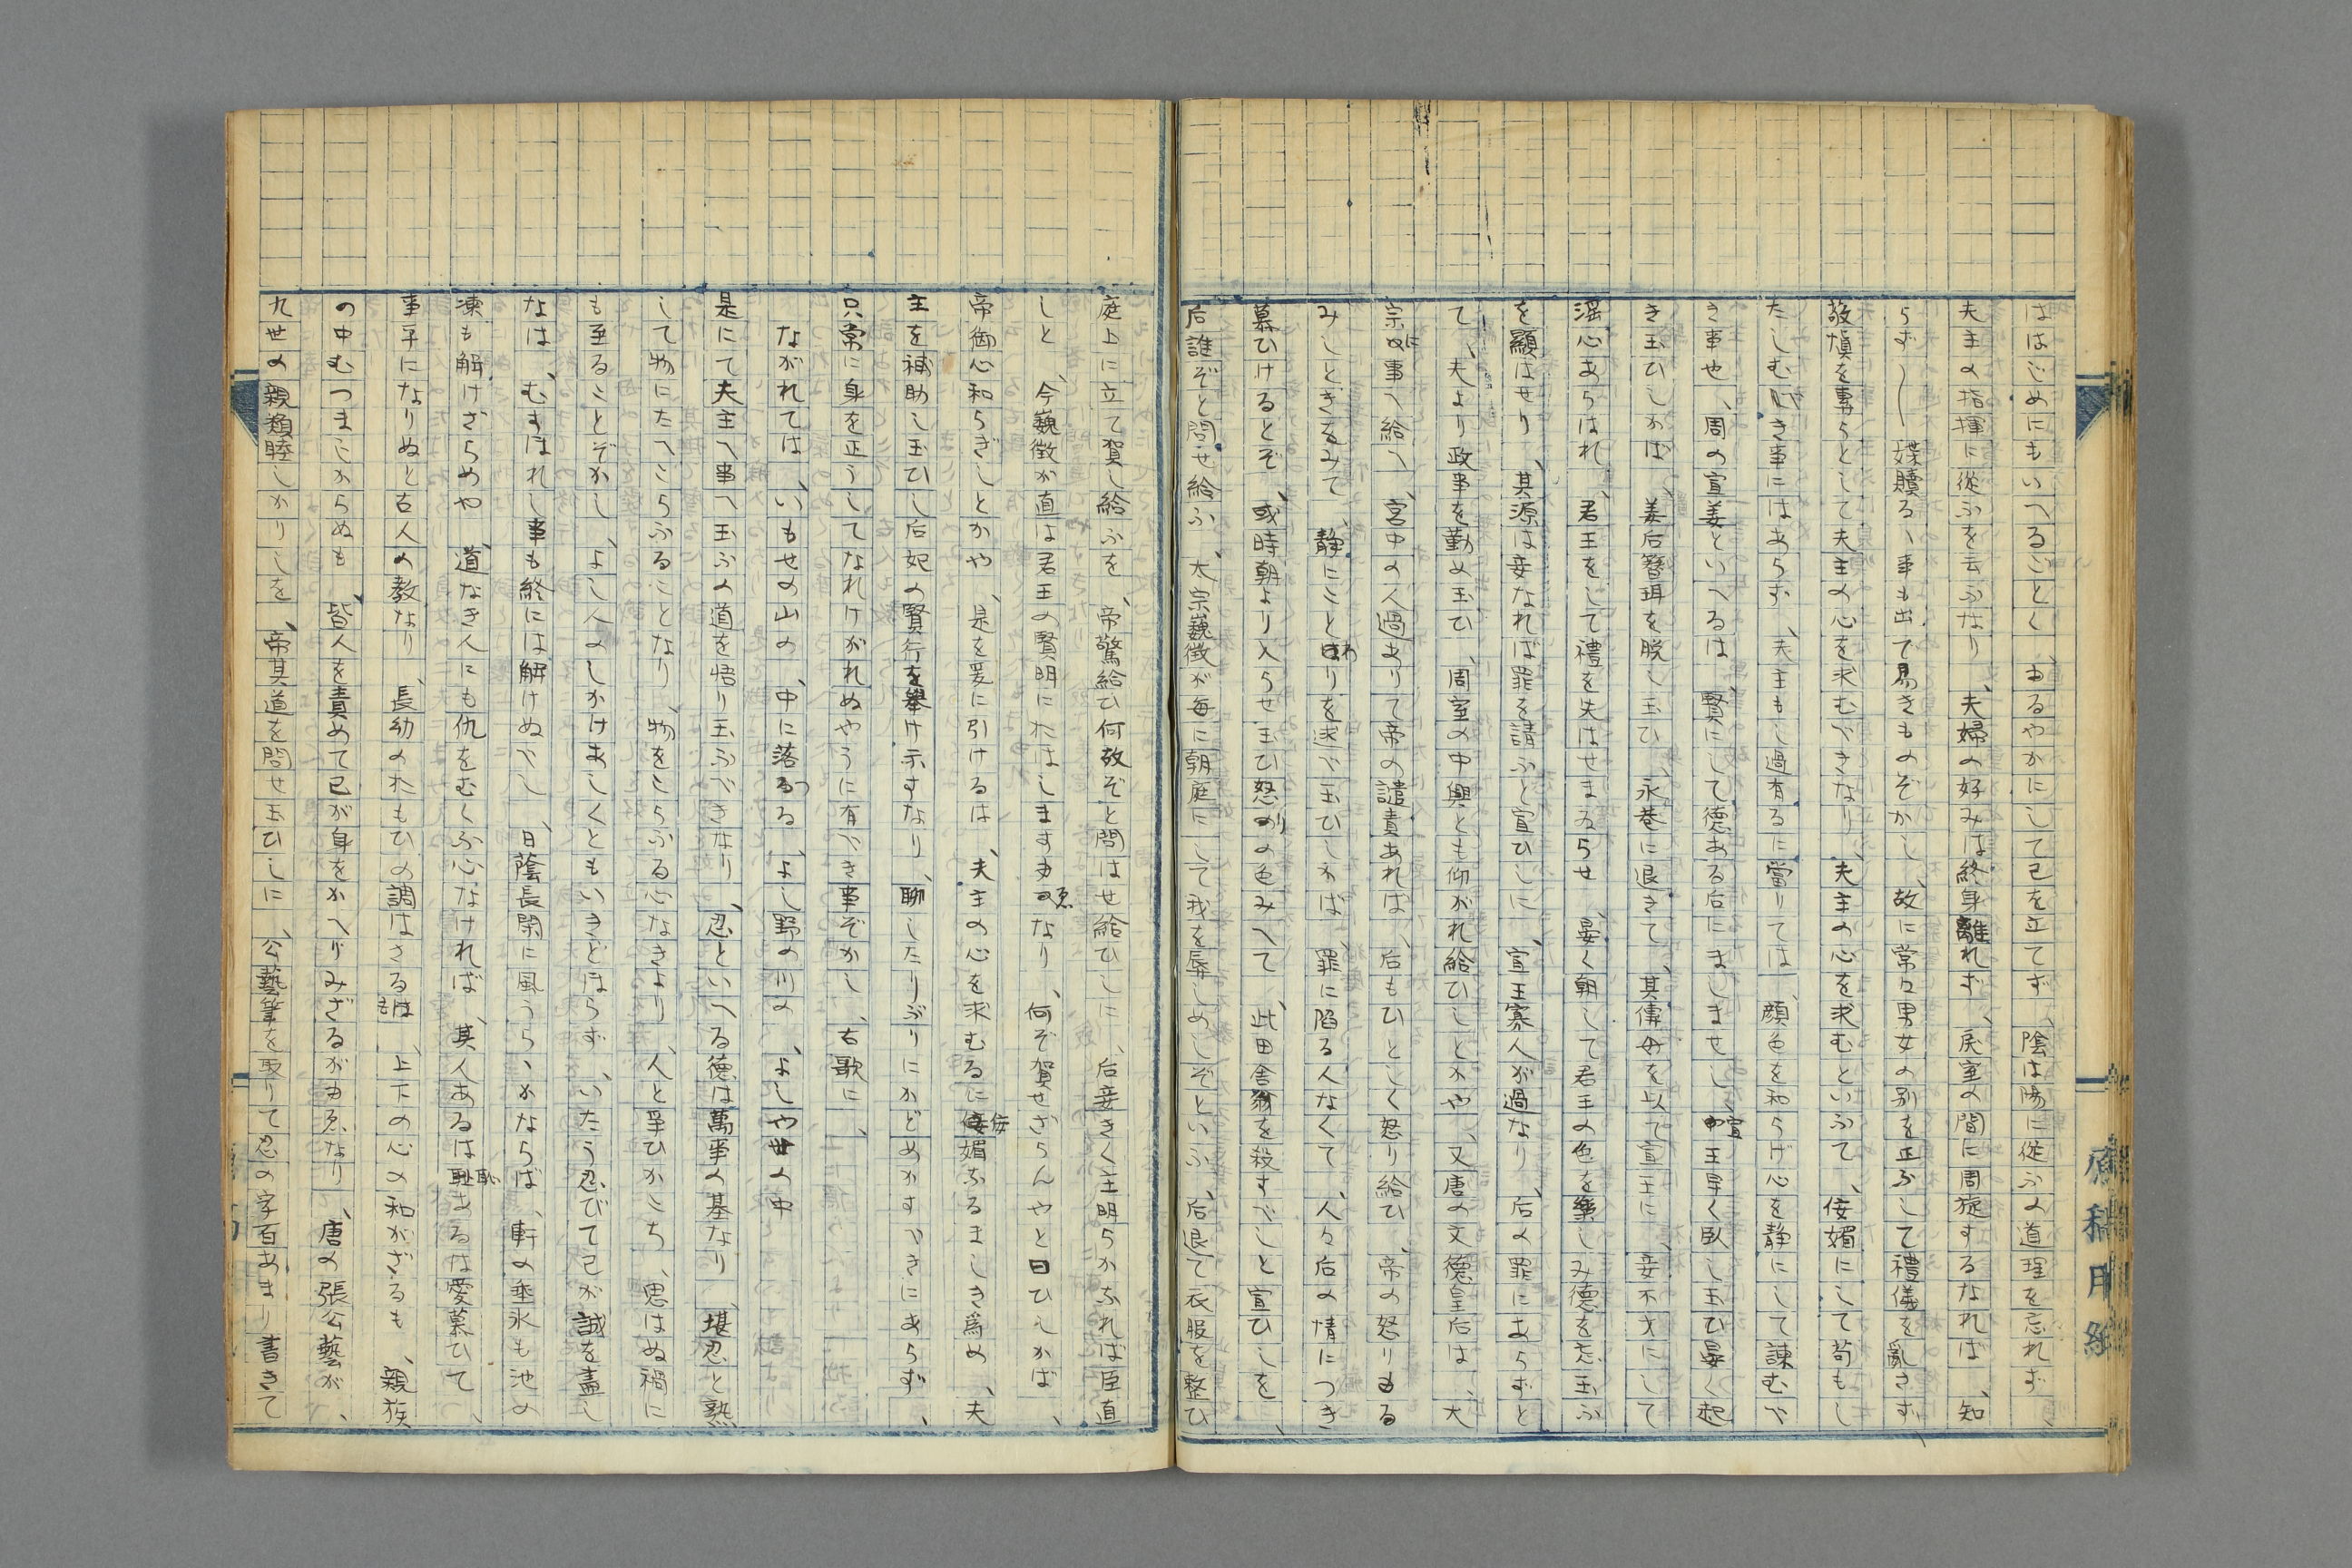 ははじめにもいへるごとく、ゆるやかにして己を立てず、陰は陽に従ふの道理を忘れず、
夫主の指揮に従ふを云ふなり、夫婦の好みは終身離れず、房室の間に周旋するなれば、知
らず〳〵媟黷るゝ事も出て易きものぞかし、故に常々男女の別を正ふして禮儀を亂さず、
敬愼を専らとして夫主の心を求むべきなり、夫主の心を求むといふて、佞媚にして苟もし
たしむべき事にはあらず、夫主もし過有るに當りては、顔色を和らげ心を静にして諫むべ
き事也、周の宣姜といへるは、賢にして徳ある后にましませし、宣王早く臥し玉ひ晏く起
き玉ひしかば、姜后簪珥を脱し玉ひ、永巷に退きて、其傅母を以て宣王に、妾不才にして
淫心あらはれ、君王をして禮を失はせまゐらせ、晏く朝して君王の色を樂しみ徳を忘玉ふ
を顯はせり、其源は妾なれば罪を請ふと宣ひしに、宣王寡人が過なり、后の罪にあらずと
て、夫より政事を勤め玉ひ、周室の中興とも仰がれ給ひしとかや、又唐の文德皇后は、太
宗に事へ給へ、宮中の人過ありて帝の譴責あれは、后もひとしく怒り給ひ、帝の怒りもる
みしときをみて、静にことわりを述べ玉ひしかば、罪に陷る人なくて、人々后の情につき
慕ひけるとぞ、或時朝より入らせ玉ひ怒りの色みへて、此田舎翁を殺すべしと宣ひしを、
后誰ぞと問せ給ふ、太宗巍徴が毎に朝庭にして我を辱しめしぞといふ、后退て衣服を整ひ
庭上に立て賀し給ふを、帝驚給ひ何故ぞと問はせ給ひしに、后妾きく主明らかなれば臣直
しと、今巍徴か直は君王の賢明にたはしますゆゑなり、何ぞ賀せざらんやと曰ひしかば、
帝御心和らぎしとかや、是を爰に引けるは、夫主の心を求むるに佞媚ふるましき爲め、夫
主を補助し玉ひし后妃の賢行を擧け示すなり、聊したりぶりにかどめかすべきにあらず、
只常に身を正うしてなれけがれぬやうに有べき事ぞかし、古歌に、
ながれては、いもせの山の、中に落つる、よし野の川の、よしや世の中
是にて夫主へ事へ玉ふの道を悟り玉ふべきなり、忍といへる徳は萬事の基なり、堪忍と熟
して物にたへこらふることなり、物をこらふる心なきより、人と爭ひかこち、思はぬ禍に
も至ることぞかし、よし人のしかけあしくともいきどほらず、いたう忍びて己が誠を盡し
なは、むすほれし事も終には解けぬべし、日蔭長閑に風うらゝかならば、軒の垂氷も池の
凍も解けざらめや、道なき人にも仇をむくふ心なければ、其人あるは恥あるは愛慕ひて、
事平になりぬと古人の教なり、長幼のたもひの調はざるは、上下の心の和がざるも、親族
の中むつましからぬも、皆人を責めて己が身をかへりみざるがゆゑなり、唐の張公藝が、
九世の親類睦しかりしを、帝其道を問せ玉ひしに、公藝筆を取りて忍の字百あまり書きて